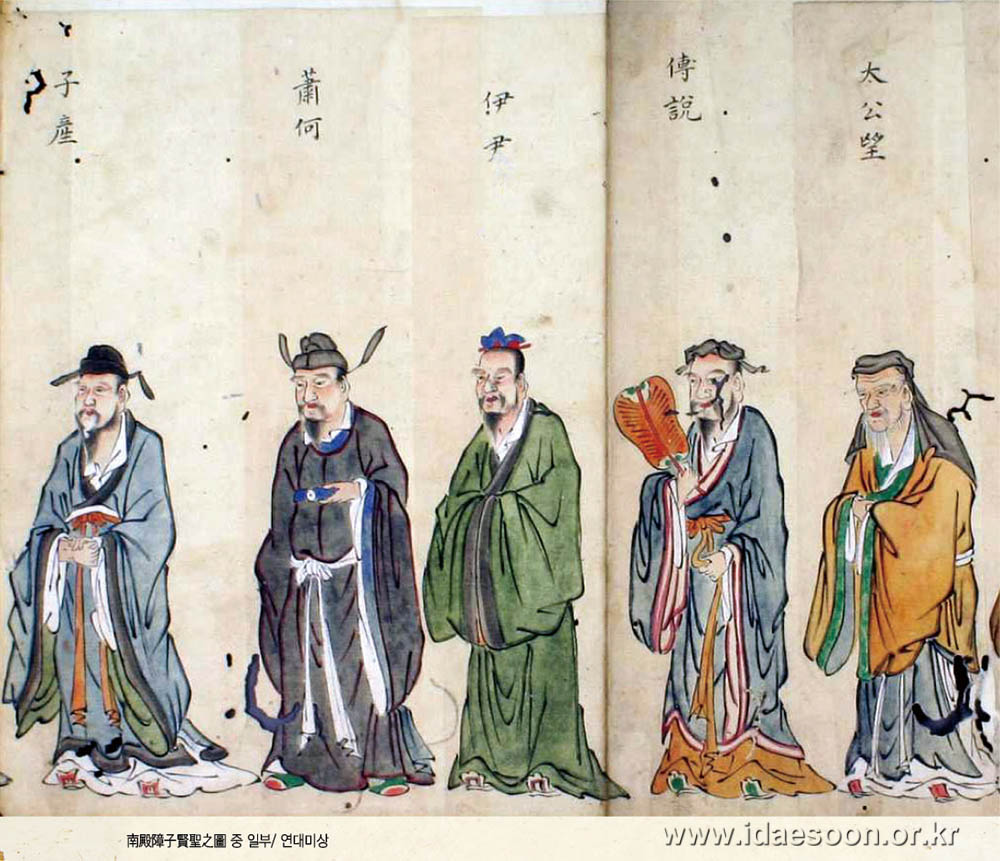 太公望
傅說
伊尹
蕭何
子產
南殿障子賢聖之圖 중 일부/ 연대미상
www.idaesoon.or.kr